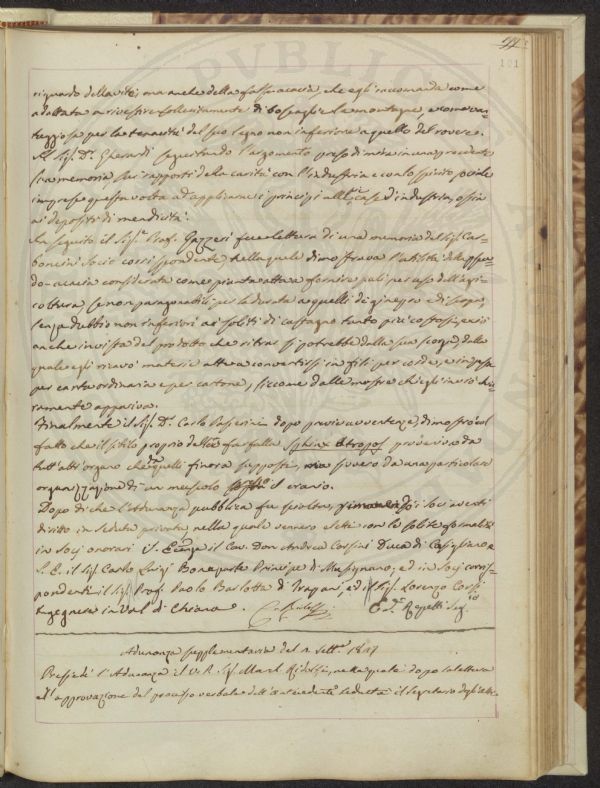 101
riguardo della vite; ma anche della falsa acacia, che egli raccomanda come
adottata a rivestire sollecitamente di boscaglie le montagne, e come van-
taggiosa per la tenacità del suo legno non inferiore a quello del rovere.
Il Sig. D. Gherardi seguitando l'argomento preso di mira in una precedente
sua memoria, sui rapporti della carità con l'industria e con lo spirito civile
imprese questa volta ad applicarne i principj alle case d'industria, ossia
ai depositi di mendicità.
In seguito il Sig. Prof. Gazzeri fece lettura di una memoria del Sig. Car-
boncini Socio corrispondente nella quale dimostrava l'utilità della pseu-
do-acacia considerata come pianta atta a fornire pali per uso dell'agri-
coltura, se non paragonabili per la durata a quelli di ginepro e di scopa,
senza dubbio non inferiori ai soliti di castagno tanto più costosi; e ciò
anche in vista del prodotto che ritrar si potrebbe dalla sua scorza, dalla
quale egli ricavò materia atta a convertirsi in fili per corde, e in pasta
per carta ordinaria e per cartone, siccome dalle mostre ch'egli inviò chia-
ramente appariva.
Finalmente il Sig. D. Carlo Passerini dopo previe avvertenze, dimostrò col
fatto che il stilo proprio della farfalla Sphinx Atropos proveniva da
tutt'altr'organo che quelli finora supposti, ovvero da una particolare
organizzazione di un muscolo il cranio.
Dopo di che l'Adunanza pubblica fu sciolta, rimanendo i soci aventi
diritto in seduta privata, nella quale vennero eletti con le solite formalità
in Socj onorarj il Cav. Don Andrea Corsini Duca di Casigliano e
S. E. il Sig. Carlo Luigi Bonaparte Principe di Musignano, ed in Socj corris-
pondenti il Sig. Prof. Paolo Barlotta di Trapani, ed il Sig. Lorenzo Corsi
Ingegnere in Val di Chiana.
C. Ridolfi
E. Repetti Seg.
Adunanza supplementaria del 2 Sett. 1827
Presiedé l'Adunanza il V. P. Sig. March. Ridolfi, nella quale dopo la lettura
ed approvazione del processo verbale dell'antecedente seduta il segretario degli atti